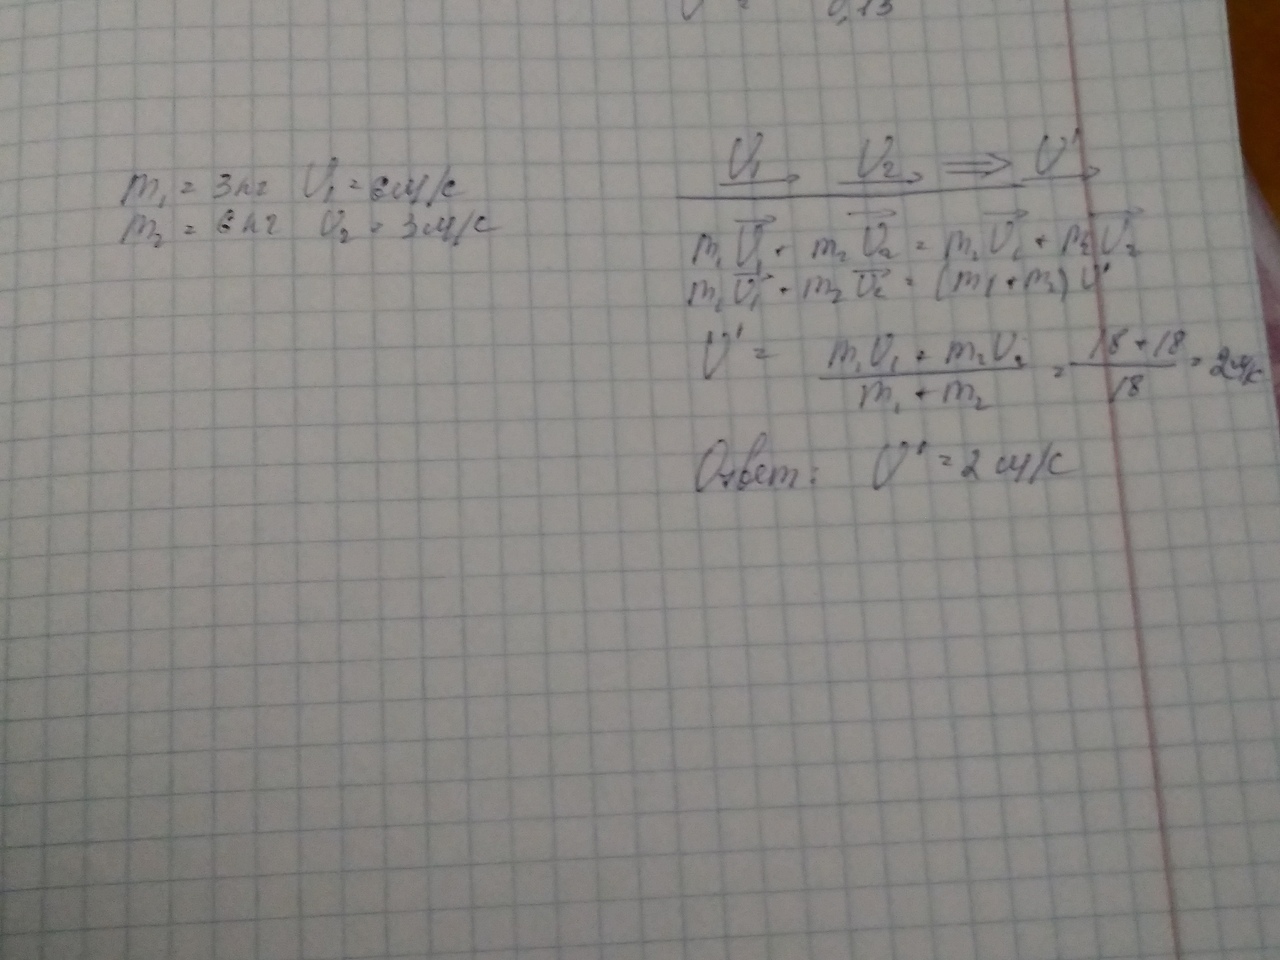 0,13
m₁ = 3кг U₁ = 6м/с
m₂ = 6кг U₂ = 3м/с
U₁ U₂ ⇒ U'
m₁U₁ + m₂U₂ = m₁U₁ + m₂U₂
m₁U₁ + m₂U₂ = (m₁+m₂)U'
U' = (m₁U₁ + m₂U₂)/(m₁ + m₂) = (18+18)/18 = 2м/с
Ответ: U' = 2 м/с